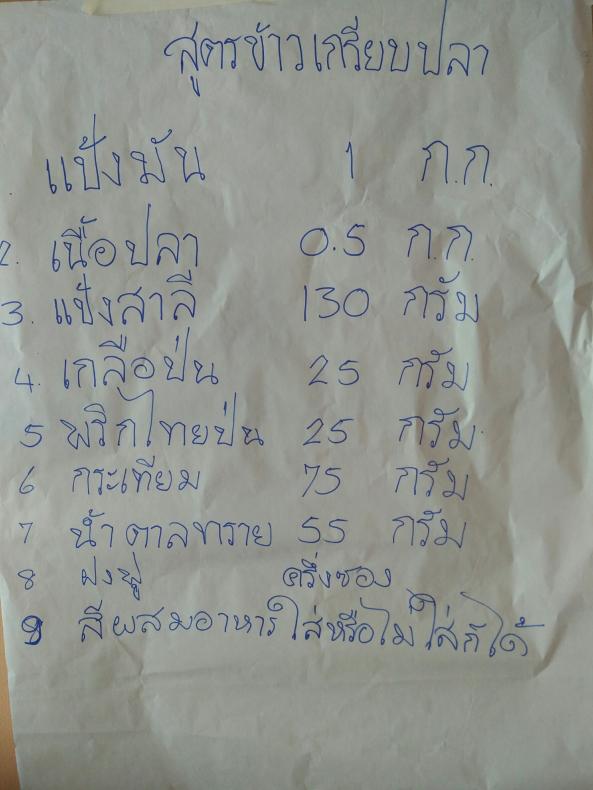 สูตรข้าวเกรียบปลา
แป้งมัน 1 ก.ก.
2. เนื้อปลา 0.5 ก.ก.
3. แป้งสาลี 130 กรัม
4. เกลือป่น 25 กรัม
5 พริกไทยป่น 25 กรัม
6 กระเทียม 75 กรัม
7 น้ำตาลทราย 55 กรัม
8 ผงฟู ครึ่งซอง
9 สีผสมอาหารใส่หรือไม่ใส่ก็ได้